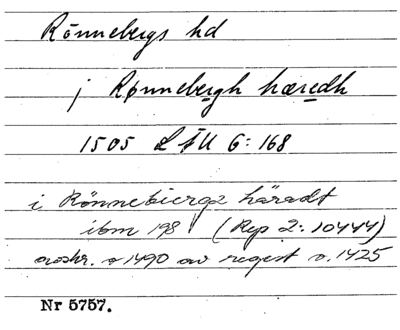 Rönnebergs hd
j Rønnebergh hæredh
1505 LÅU 6: 168
i Rönnebierga häradt
ibm 198 (Rep 2: 10444)
avskr. o 1490 av regist o. 1425
Nr 5757.